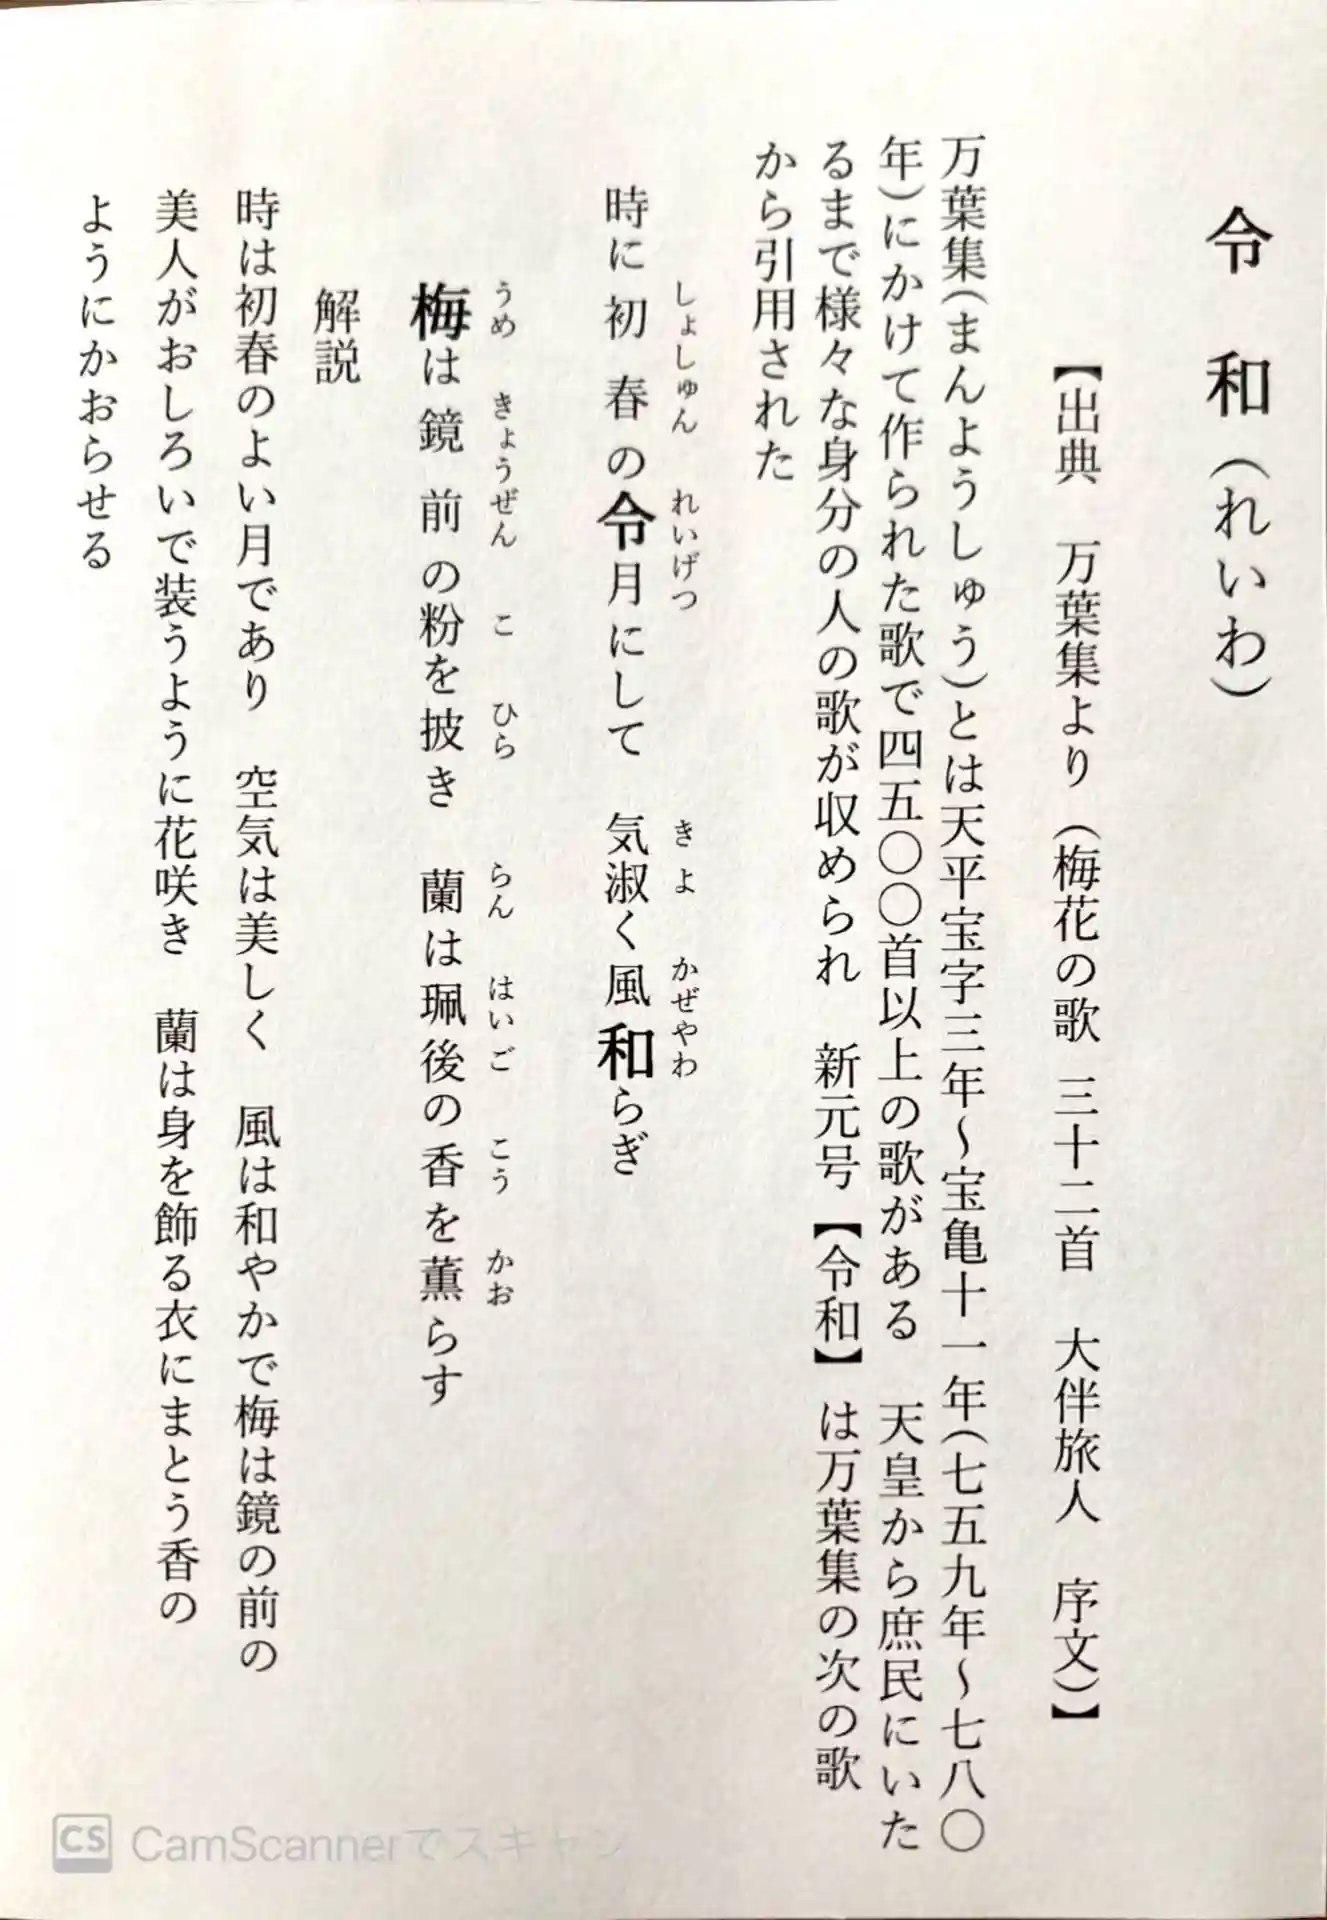 令 和（れいわ）
【出典　万葉集より（梅花の歌 三十二首　大伴旅人　序文）】
万葉集（まんようしゅう）とは天平宝字三年～宝亀十一年（七五九年～七八〇
年）にかけて作られた歌で四五〇〇首以上の歌がある　天皇から庶民にいた
るまで様々な身分の人の歌が収められ　新元号【令和】は万葉集の次の歌
から引用された
しょしゅん　れいげつ　きよ　かぜやわ
時に初春の令月にして　気淑く風和らぎ
うめ　きょうぜん　こ　ひら　らん　はいご　こう　かお
梅は鏡前の粉を披き　蘭は珮後の香を薫らす
解説
時は初春のよい月であり　空気は美しく　風は和やかで梅は鏡の前の
美人がおしろいで装うように花咲き　蘭は身を飾る衣にまとう香の
ようにかおらせる
CS CamScannerでスキャン